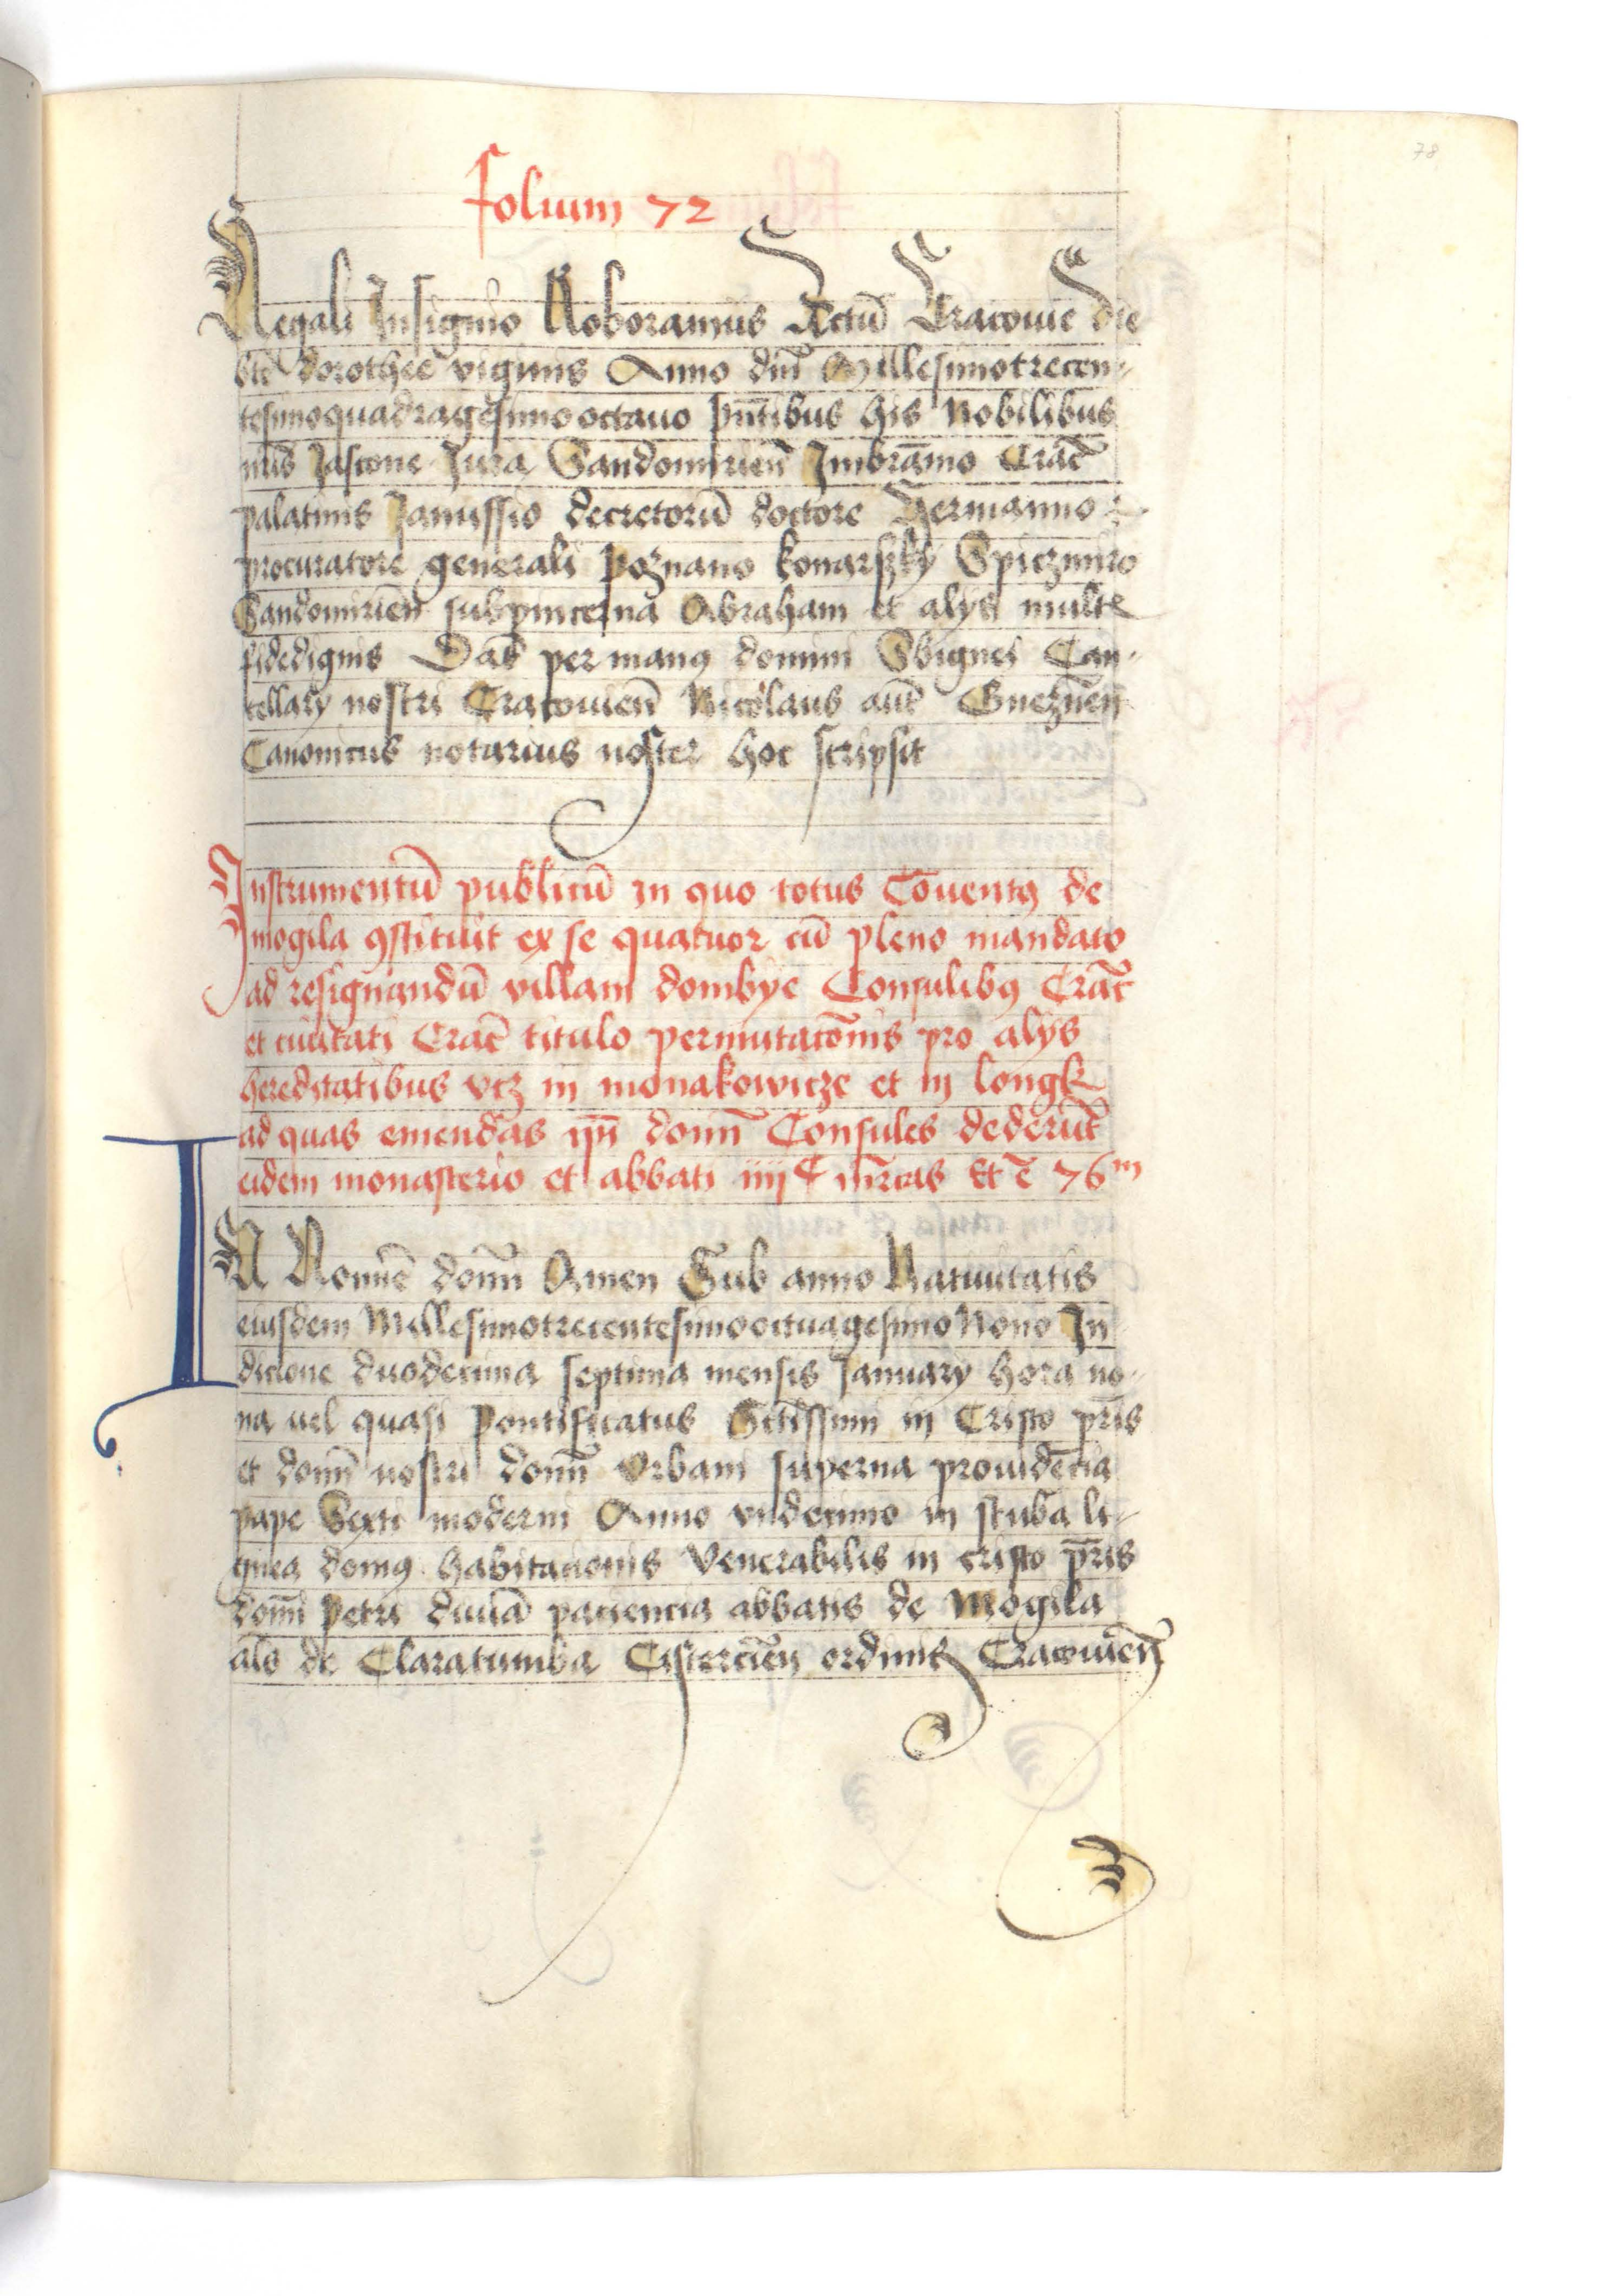 78
folium 72
Regali Insignio Roboramus Actū Cracouie die
bte dorothee viginis Anno dn̄i Millesimotrecen-
tesimoquadragesimooctauo pn̄tibus his Nobilibus
Jascone Jura Sandomirien̄ Imbramo Crac̄
palatinis Janussio decretorū doctore Hermanno
procuratore generali poznano konarszky Spiczmiro
Sandomirien̄ subpincerna Abraham et alys
fidedignis Dat̄ per manꝯ domini Sbignei Can-
cellary nostri Cracouien̄ Nicolaus aūt Gneznen̄
Canonicus notarius noster hoc scripsit
Instrumentū publicū in quo totus Cōuentꝯ de
mogila ꝯstituit ex se quatuor cū pleno mandato
ad resignandū villam dombye Consulibꝯ Crac̄
et ciuitati Crac̄ titulo permutacōnis pro alys
hereditatibus vcz in monakowicze et in longk
ad quas emendas domī Consules dederūt
eidem monasterio et abbati iiiiC mr̄cas Et ē 76m
IN Nomīe domī Amen Sub anno Natiuitatis
eiusdem Millesimotrecentesimooctuagesimo Nono In
dictione duodecima septima mensis January hora no-
na uel quasi pontificatus Sctīssimi in Cristo pr̄is
et domī nostri domī Vrbani superna prouidēcia
pape Sexti moderni Anno vndecimo in stuba li-
gnea domꝯ habitacionis Venerabilis in cristo pr̄is
domī petri diuīa paciencia abbatis de Mogila
als̄ de Claratumba Cistercien̄ ordinis Cracouien̄